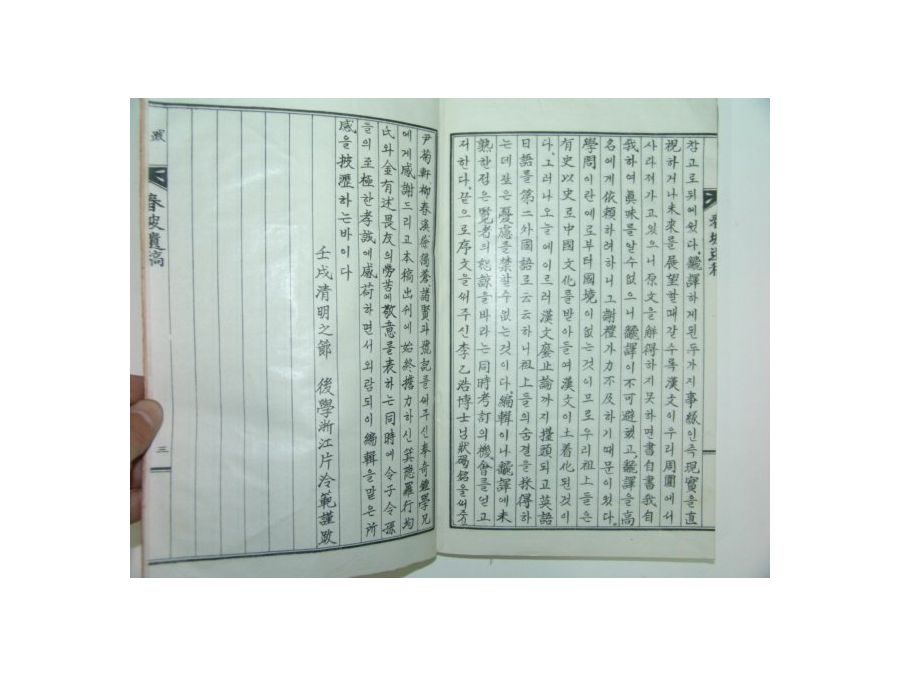 참고로뒤에썼다. 飜譯하게된두가지事緣인즉現實을直
視하거나未來를展望할때갈수록漢文이우리周圍에서
사라져가고있으니原文을解得하지못하면書自書我自
我하여眞味를알수없으니飜譯이不可避했고, 飜譯을高
名에게依賴하려하니그謝禮가力不及하기때문이었다.
學問이란예로부터國境이없는것이므로우리祖上들은
有史以史로中國文化를받아들여漢文이土着化된것이
다. 그러나오늘에이르러漢文廢止論까지擡頭되고英語
日語를第二外國語로云云하니祖上들의숨결을採得하
는데짙은憂慮를禁할수없는것이다. 編輯이나飜譯에未
熟한점은覽者의恕諒을바라는同時考訂의機會를얻고
저한다. 끝으로序文을써주신李乙浩博士님狀碣銘을써주신
尹菊軒柳春溪徐 蒼諸賢과號記를써주신奉奇鍾學兄
에게感謝드리고本稿出刊에始終携力하신 羅行均
氏와金有述畏友의勞苦에敬意를表하는同時에令子令孫
들의至極한孝誠에感荷하면서외람되이編輯을맡은所
感을披瀝하는바이다
壬戌淸明之節 後學浙江片冷範謹跋
跋
春坡遺稿
三
春坡遺稿